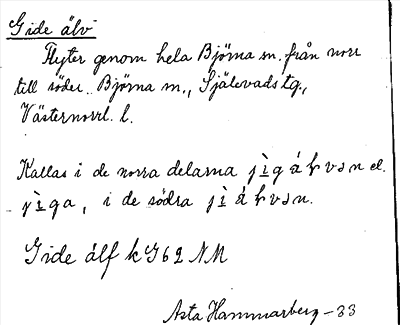 Gide älv
Flyter genom hela Björna sn. från norr
till söder. Björna sn., Själevads tg.,
Västernorrl. l.
Kallas i de norra delarna el.
i de södra
Gide älf k G62 NM
Asta Hammarberg - 33